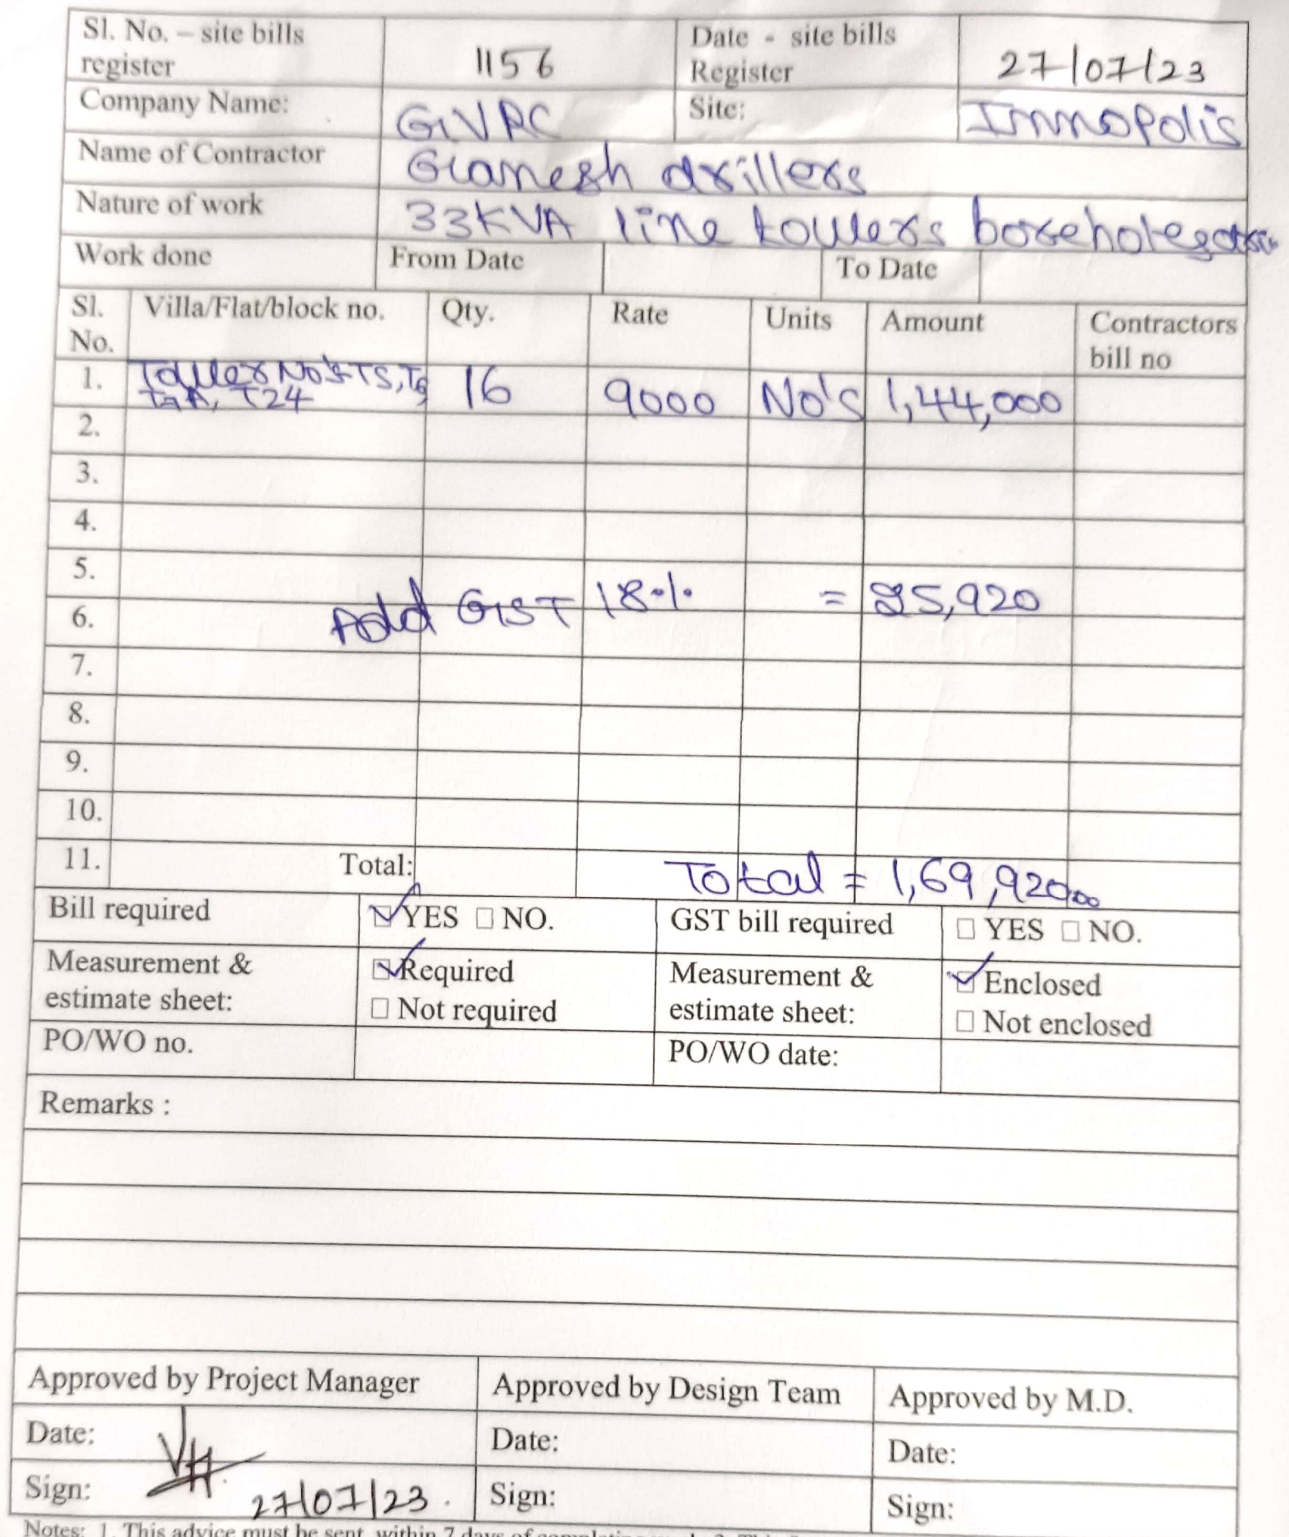 Sl. No. – site bills register 1156 Date - site bills Register 27/07/23
Company Name: GVRC Site: Innopolis
Name of Contractor Ganesh drillers
Nature of work 33KVA line towers borehole
Work done From Date To Date
Sl. No. Villa/Flat/block no. Qty. Rate Units Amount Contractors bill no
1. Tower No's T5, 16 9000 No's 1,44,000
T24
2.
3.
4.
5.
Add GST 18% = 25,920
6.
7.
8.
9.
10.
11. Total: Total = 1,69,920
Bill required YES NO. GST bill required YES NO.
Measurement & estimate sheet: Required Measurement & estimate sheet: Enclosed
Not required Not enclosed
PO/WO no. PO/WO date:
Remarks :
Approved by Project Manager Approved by Design Team Approved by M.D.
Date: Date: Date:
Sign: 27/07/23. Sign: Sign:
Notes: 1. This advice must be sent within 7 days of